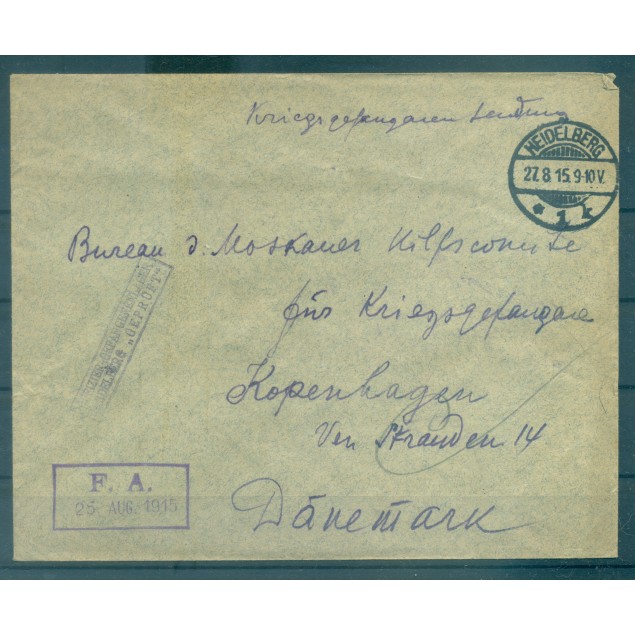 Kriegsgefangenen Sendung
HEIDELBERG
27.8.15.9-10V.
* 1 k
Bureau d. Moskauer Hilfscomite
für Kriegsgefangene
Kopenhagen
Ven Stranden 14
Dänemark
"GEPRÜFT"
F. A.
25. AUG. 1915